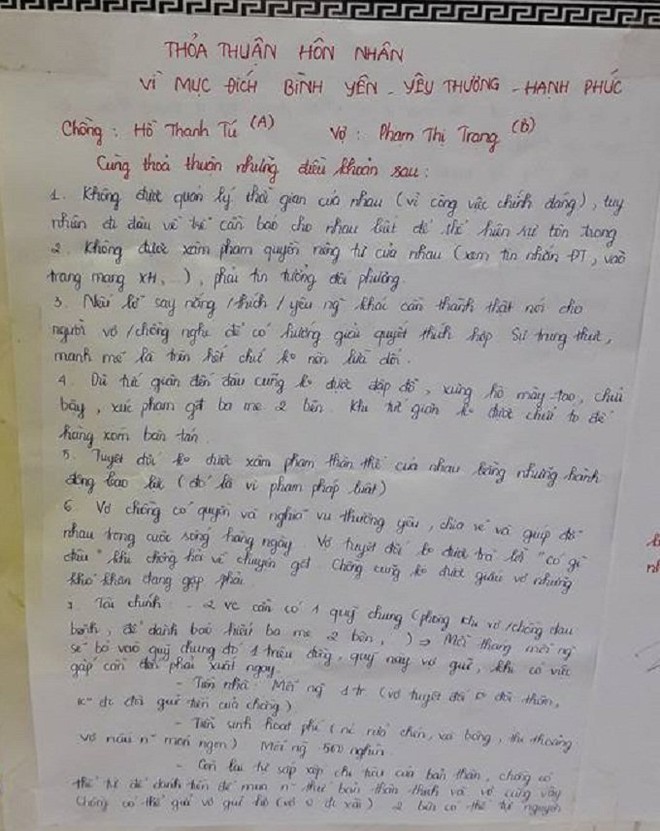 THỎA THUẬN HÔN NHÂN
VÌ MỤC ĐÍCH BÌNH YÊN - YÊU THƯƠNG - HẠNH PHÚC
Chồng : Hồ Thanh Tú (A) Vợ : Phạm Thị Trang (B)
Cùng thoả thuận những điều khoản sau :
1. Không được quản lý thời gian của nhau (vì công việc chính đáng), tuy
nhiên đi đâu về trễ cần báo cho nhau biết để thể hiện sự tôn trọng
2. Không được xâm phạm quyền riêng tư của nhau (xem tin nhắn ĐT, vào
trang mạng XH, ...), phải tin tưởng đối phương.
3. Nếu lỡ say nắng / thích / yêu ng khác cần thành thật nói cho
người vợ / chồng nghe để có hướng giải quyết thích hợp. Sự trung thực,
mạnh mẽ là trên hết chứ ko nên lừa dối.
4. Dù tức giận đến đâu cũng ko được đập đồ, xưng hô mày-tao, chửi
bậy, xúc phạm gđ ba mẹ 2 bên. Khi tức giận ko được chửi to để
hàng xóm bàn tán.
5. Tuyệt đối ko được xâm phạm thân thể của nhau bằng những hành
động bạo lực (đó là vi phạm pháp luật)
6. Vợ chồng có quyền và nghĩa vụ thương yêu, chia sẻ và giúp đỡ
nhau trong cuộc sống hàng ngày. Vợ tuyệt đối ko được trả lời "có gì
đâu" khi chồng hỏi về chuyện gđ. Chồng cũng ko được giấu vợ những
khó khăn đang gặp phải.
7. Tài chính : - 2 vc cần có 1 quỹ chung (phòng khi vợ/chồng đau
bệnh, để dành báo hiếu ba mẹ 2 bên, ) => Mỗi tháng mỗi ng
sẽ bỏ vào quỹ chung đó 1 triệu đồng, quỹ này vợ giữ, khi có việc
gấp cần đến phải xuất ngay.
- Tiền nhà: Mỗi ng 1tr (vợ tuyệt đối
đi đòi giữ tiền của chồng)
- Tiền sinh hoạt phí (
vợ nấu món ngon) Mỗi ng 500 nghìn.
- Còn lại tự sắp xếp chi tiêu của bản thân, chồng có
thể tự để dành tiền để mua thứ bản thân thích và vợ cũng vậy
Chồng có thể gửi vợ giữ hộ (vợ đi xài) 2 bên có thể tự nguyện